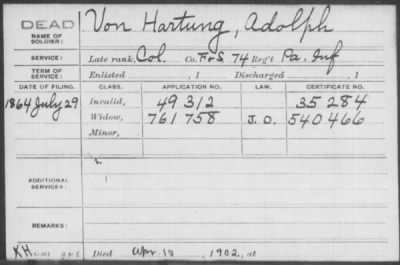 DEAD
NAME OF SOLDIER: Von Hartung, Adolph
SERVICE: Late rank, Col. Co. F&S, 74 Reg't Pa. Inf
TERM OF SERVICE: Enlisted , 1 Discharged , 1
DATE OF FILING. CLASS. APPLICATION NO. LAW. CERTIFICATE NO.
1864 July 29 Invalid, 49312 35284
Widow, 761758 J.O. 540466
Minor,
ADDITIONAL SERVICES:
REMARKS:
KH Died Apr 10, 1902, at